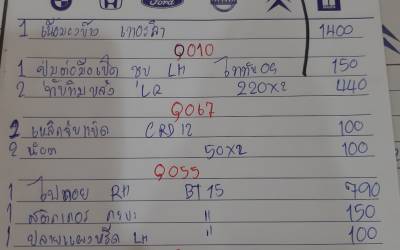 Ford
1 เนียมวงข้าง เทอร์ล่า 1400
Q010
1 ปุ่มต่อมือเปิด ชุบ LH ไททัน OS 150
2 ทับทิมหลัง LR 220x2 440
Q067
2 เหล็กจับแป็ด CRD 12 100
2 น๊อต 50x2 100
Q055
1 ไฟตอย RH BT 15 790
1 สติกเกอร์ กระบะ " 150
1 ปลายแผงหรีด LH " 100